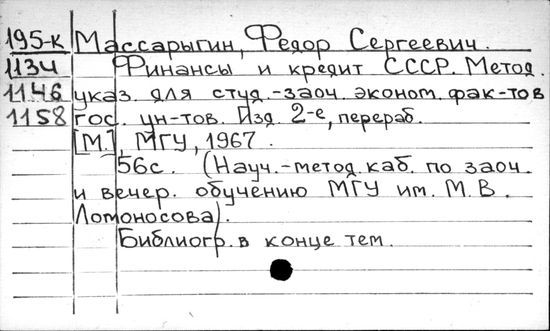 195-к Массарыгин, Федор Сергеевич.
1134 Финансы и кредит СССР. Метод.
1146 указ. для студ.-заоч. эконом. фак-тов
1158 гос. ун-тов. Изд. 2-е, перераб.
[М.], МГУ, 1967.
56с. (Науч.-метод. каб. по заоч.
и вечер. обучению МГУ им. М.В.
Ломоносова).
Библиогр. в конце тем.